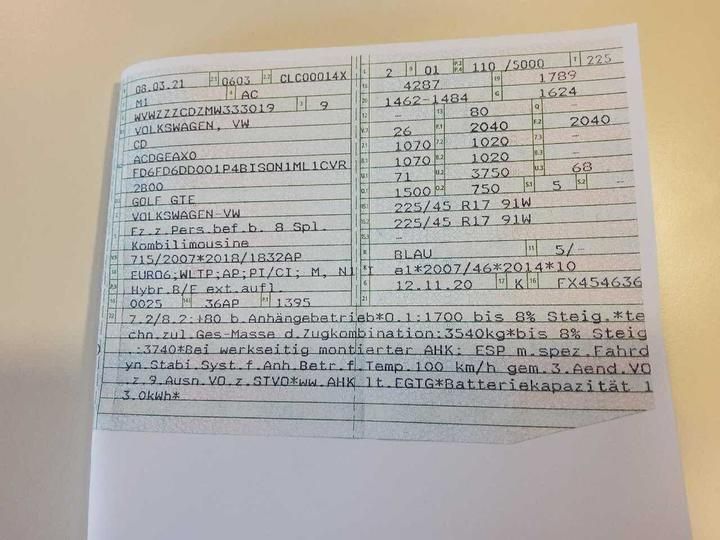 08.03.21 2.1 0603 2.2 CLC00014X
M1 4 AC
WVWZZZCDZMW333019 3 9
VOLKSWAGEN, VW
CD
ACDGEAX0
FD6FD6DD001P4BISON1ML1CVR
2B00
GOLF GTE
VOLKSWAGEN-VW
Fz.z.Pers.bef.b. 8 Spl.
Kombilimousine
715/2007*2018/1832AP
EURO6;WLTP;AP;PI/CI; M, N1 I
Hybr.B/E ext.aufl.
0025 36AP P.1 1395
L 2 9 01 P.2 P.4 110 /5000 T 225
18 4287 19 1789
20 1462-1484 G 1624
12 - 13 80 Q -
V.7 26 F.1 2040 F.2 2040
7.1 1070 7.2 1020 7.3 -
8.1 1070 8.2 1020 8.3 -
U.1 71 U.2 3750 U.3 68
O.1 1500 O.2 750 S.1 5 S.2 -
15.1 225/45 R17 91W
15.2 225/45 R17 91W
15.3 -
R BLAU 11 5/-
K e1*2007/46*2014*10
6 12.11.20 17 K 16 FX454636
21
22 7.2/8.2:+80 b.Anhängebetrieb*O.1:1700 bis 8% Steig.*te
chn.zul.Ges-Masse d.Zugkombination:3540kg*bis 8% Steig
.:3740*Bei werkseitig montierter AHK: ESP m.spez.Fahrd
yn.Stabi.Syst.f.Anh.Betr.f.Temp.100 km/h gem.3.Aend.VO
.z.9.Ausn.VO.z.STVO*ww.AHK lt.EGTG*Batteriekapazität 1
3.0kWh*